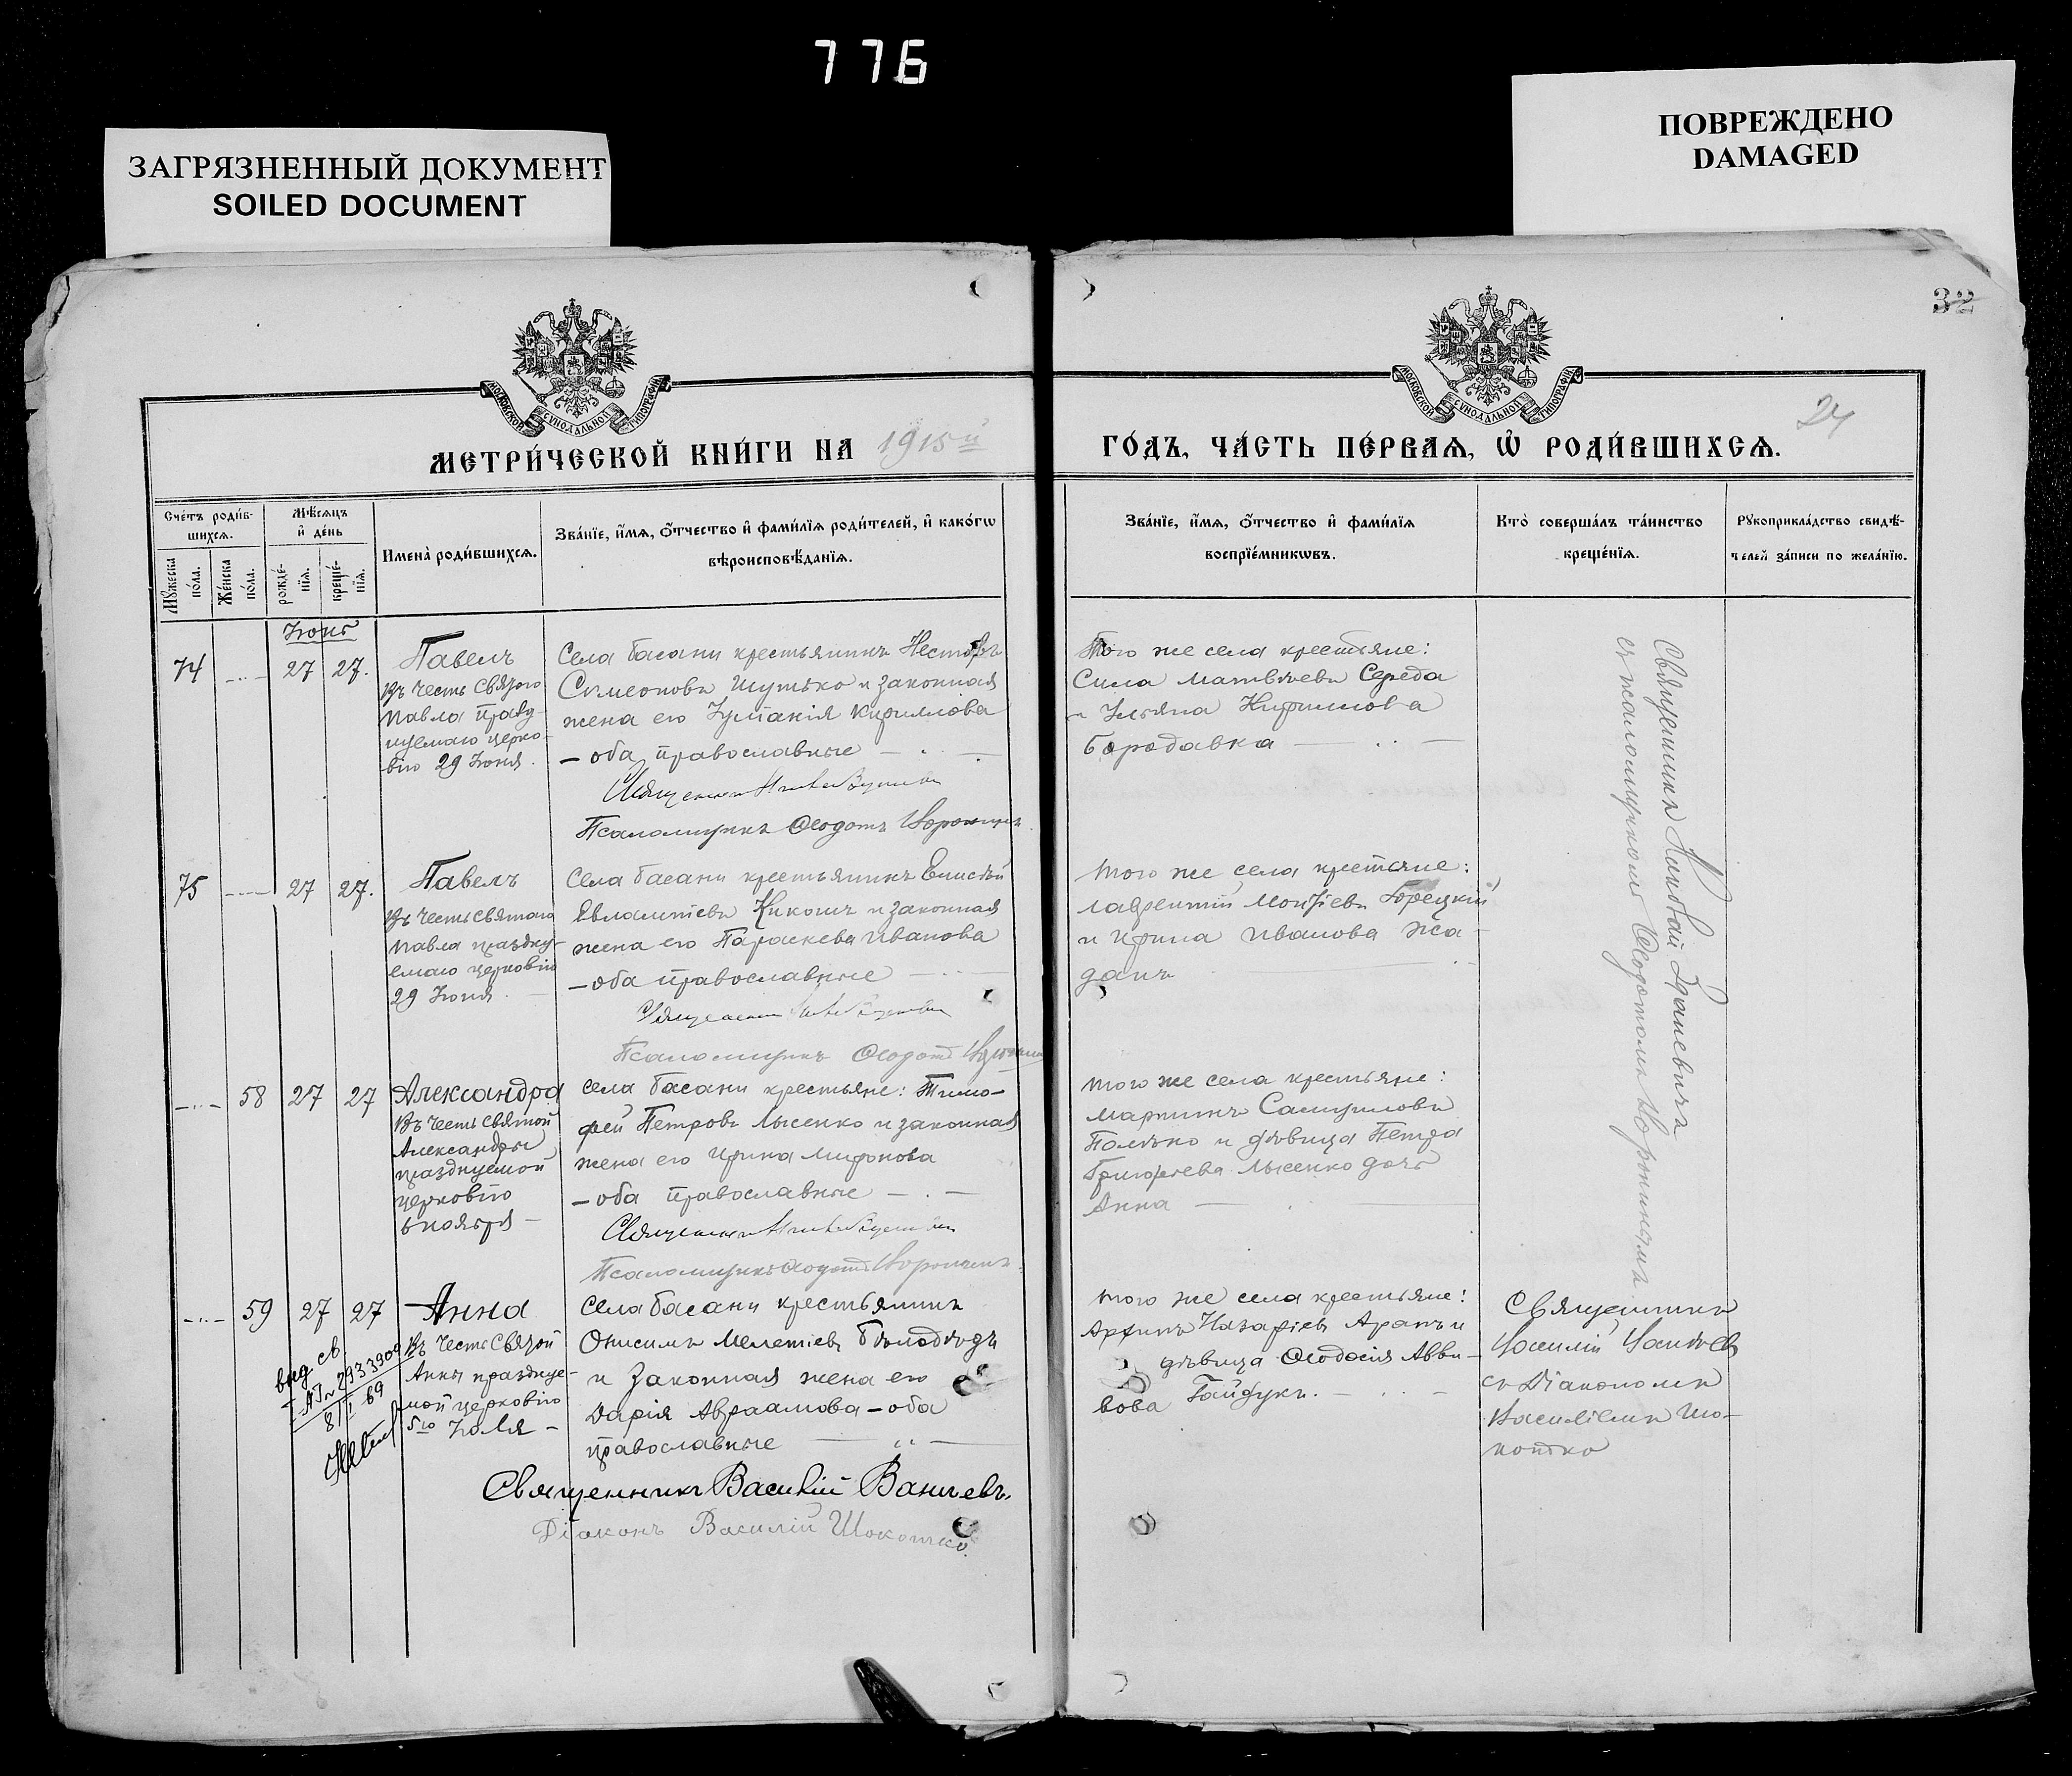 776
ЗАГРЯЗНЕННЫЙ ДОКУМЕНТ
SOILED DOCUMENT
ПОВРЕЖДЕНО
DAMAGED
32
24
МОСКОВСКОЙ СѴНОДАЛЬНОЙ ТИПОГРАФІИ
МОСКОВСКОЙ СѴНОДАЛЬНОЙ ТИПОГРАФІИ
МЕТРИ́ЧЕСКОЙ КНИ́ГИ НА 1915й
ГО́ДЪ, ЧА́СТЬ ПЕ́РВАѦ, Ѡ҆ РОДИ́ВШИХСѦ.
Сче́тъ роди́в-
шихсѧ.
Мꙋ́жеска
по́ла.
Же́нска
по́ла.
Мѣ́сѧцъ
и҆ де́нь
рожде́-
нїѧ.
креще́-
нїѧ.
Имена̀ роди́вшихсѧ.
Зва́нїе, и҆́мѧ, ѻ҆́тчество и҆ фами́лїѧ роди́телей, и҆ како́гѡ
вѣроисповѣ́данїѧ.
Зва́нїе, и҆́мѧ, ѻ҆́тчество и҆ фами́лїѧ
воспрїе́мникѡвъ.
Кто̀ соверша́лъ та́инство
креще́нїѧ.
Рꙋкоприкла́дство свидѣ́-
телей за́писи по жела́нїю.
Іюнь
74
27
27.
Павелъ
Въ честь Святого
Павла празд-
нуемаго церко-
вію 29 Іюня.
Села Басани крестьянинъ Несторъ
Симеоновъ Шутько и законная
жена его Іуліанія Кириллова
- оба православные
Священникъ
Псаломщикъ Ѳеодотъ
Того же села крестьяне:
Сила Матвѣевъ Середа
и Ульяна Кириллова
Бородавка
Священникъ Николай Зданевичъ
съ псаломщикомъ Ѳеодотомъ
75
27
27.
Павелъ
Въ честь Святаго
Павла праздну-
емаго церковію
29 Іюня.
Села Басани крестьянинъ Елисѣй
Евлампіевъ и законная
жена его Параскева Иванова
- оба православные
Священникъ
Псаломщикъ Ѳеодотъ
Того же села крестьяне:
Лаврентій Моисіевъ Борецкій
и Ирина Иванова Жа-
данъ
58
27
27
Александра
Въ честь Святой
Александры
празднуемой
церковію
6 ноября
Села Басани крестьяне: Тимо-
фей Петровъ Лысенко и законная
жена его Ирина Миронова
- оба православные
Священникъ
Псаломщикъ Ѳеодотъ
Того же села крестьяне:
Мартинъ Самуиловъ
и дѣвица Петра
Григорьева Лысенко дочь
Анна
59
27
27
Анна
Въ честь Святой
Анны празднуе-
мой церковію
5го Іюля
выд. св.
8/I 69
Села Басани крестьянинъ
Онисимъ Мелетіевъ Бѣлодѣдъ
и законная жена его
Дарія Авраамова - оба
православные
Священникъ Василій Ваничевъ.
Діаконъ Василій Шокотко.
Того же села крестьяне:
Архипъ Назаріевъ Арапъ и
дѣвица Ѳеодосія Авва-
вова Гайдукъ.
Священникъ
Василій
съ Діакономъ
Василіемъ Шо-
котко